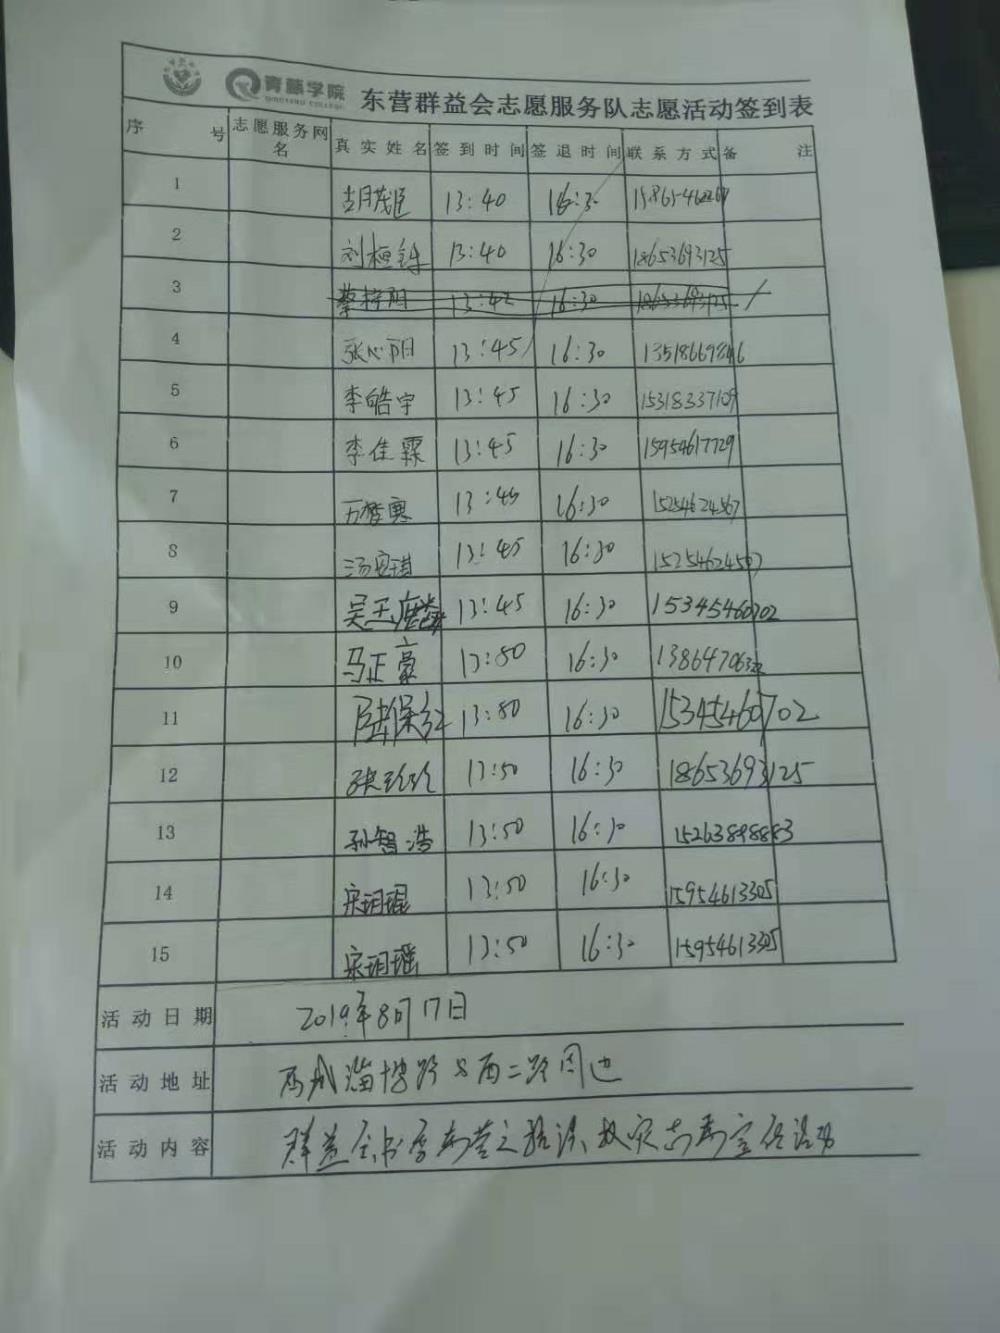 青藤学院
QINGTENG COLLEGE
东营群益会志愿服务队志愿活动签到表
序 号 志愿服务网名 真实姓名 签到时间 签退时间 联系方式 备 注
1 13:40 16:30
2 刘桓铄 13:40 16:30 18653693125
3 蔡梓阳 13:42 16:30 18653693125
4 张心阳 13:45 16:30 13518669846
5 李皓宇 13:45 16:30 15318337109
6 李佳霖 13:45 16:30 15954617729
7 13:45 16:30 15254624567
8 汤宝琪 13:45 16:30 15254624567
9 吴玉麟 13:45 16:30 15345460702
10 马正豪 13:50 16:30
11 陆保红 13:50 16:30 15345460702
12 张玲玲 13:50 16:30 18653693125
13 孙智浩 13:50 16:30 15263898883
14 宋玥琨 13:50 16:30 15954613305
15 宋玥瑶 13:50 16:30 15954613305
活动日期 2019年8月17日
活动地址 西城淄博路与西二路周边
活动内容 群益会